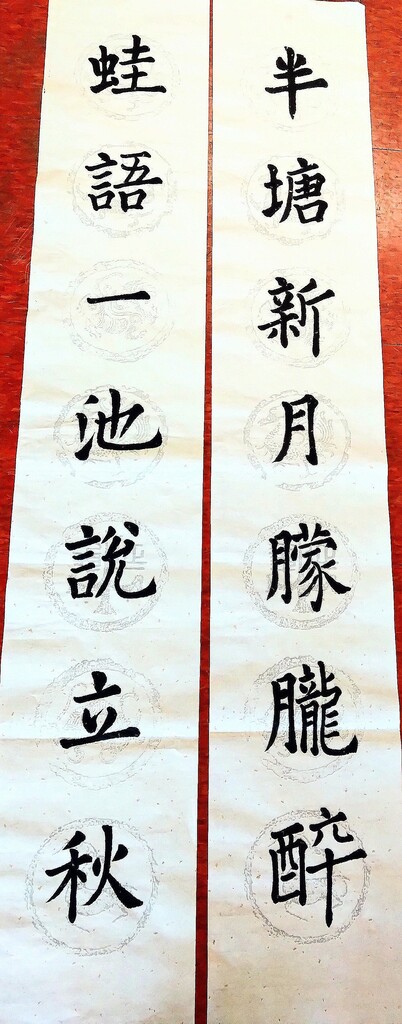 半塘新月朦朧醉
蛙語一池說立秋